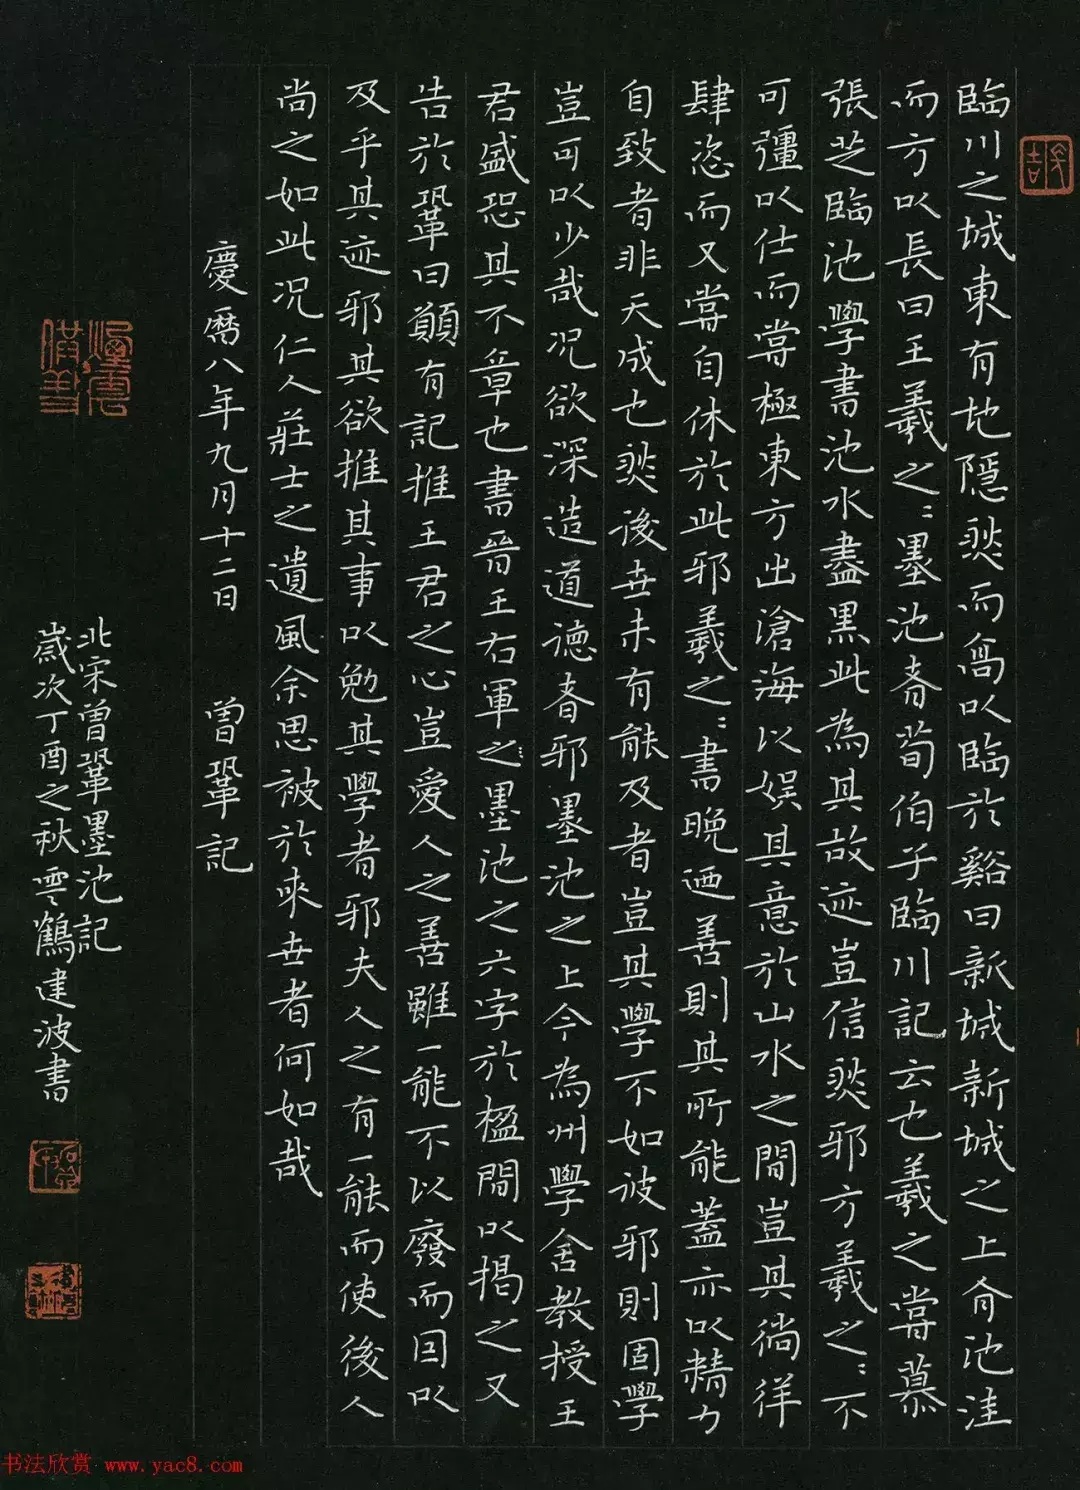 臨川之城東有地隱然而高以臨於谿曰新城新城之上有池洼
而方以長曰王羲之〻墨池者荀伯子臨川記云也羲之嘗慕
張芝臨池學書池水盡黑此為其故迹豈信然邪方羲之〻不
可彊以仕而嘗極東方出滄海以娱其意於山水之間豈其徜徉
肆恣而又嘗自休於此邪羲之〻書晚迺善則其所能蓋亦以精力
自致者非天成也然後世未有能及者豈其學不如彼邪則固學
豈可以少哉况欲深造道德者邪墨池之上今為州學舍教授王
君盛恐其不章也書晉王右軍之墨池之六字於楹間以揭之又
告於鞏曰願有記推王君之心豈愛人之善雖一能不以廢而因以
及乎其迹邪其欲推其事以勉其學者邪夫人之有一能而使後人
尚之如此况仁人莊士之遺風余思被於來世者何如哉
慶曆八年九月十二日 曾鞏記
北宋曾鞏墨池記
歲次丁酉之秋雲鶴建波書
书法欣赏 www.yac8.com